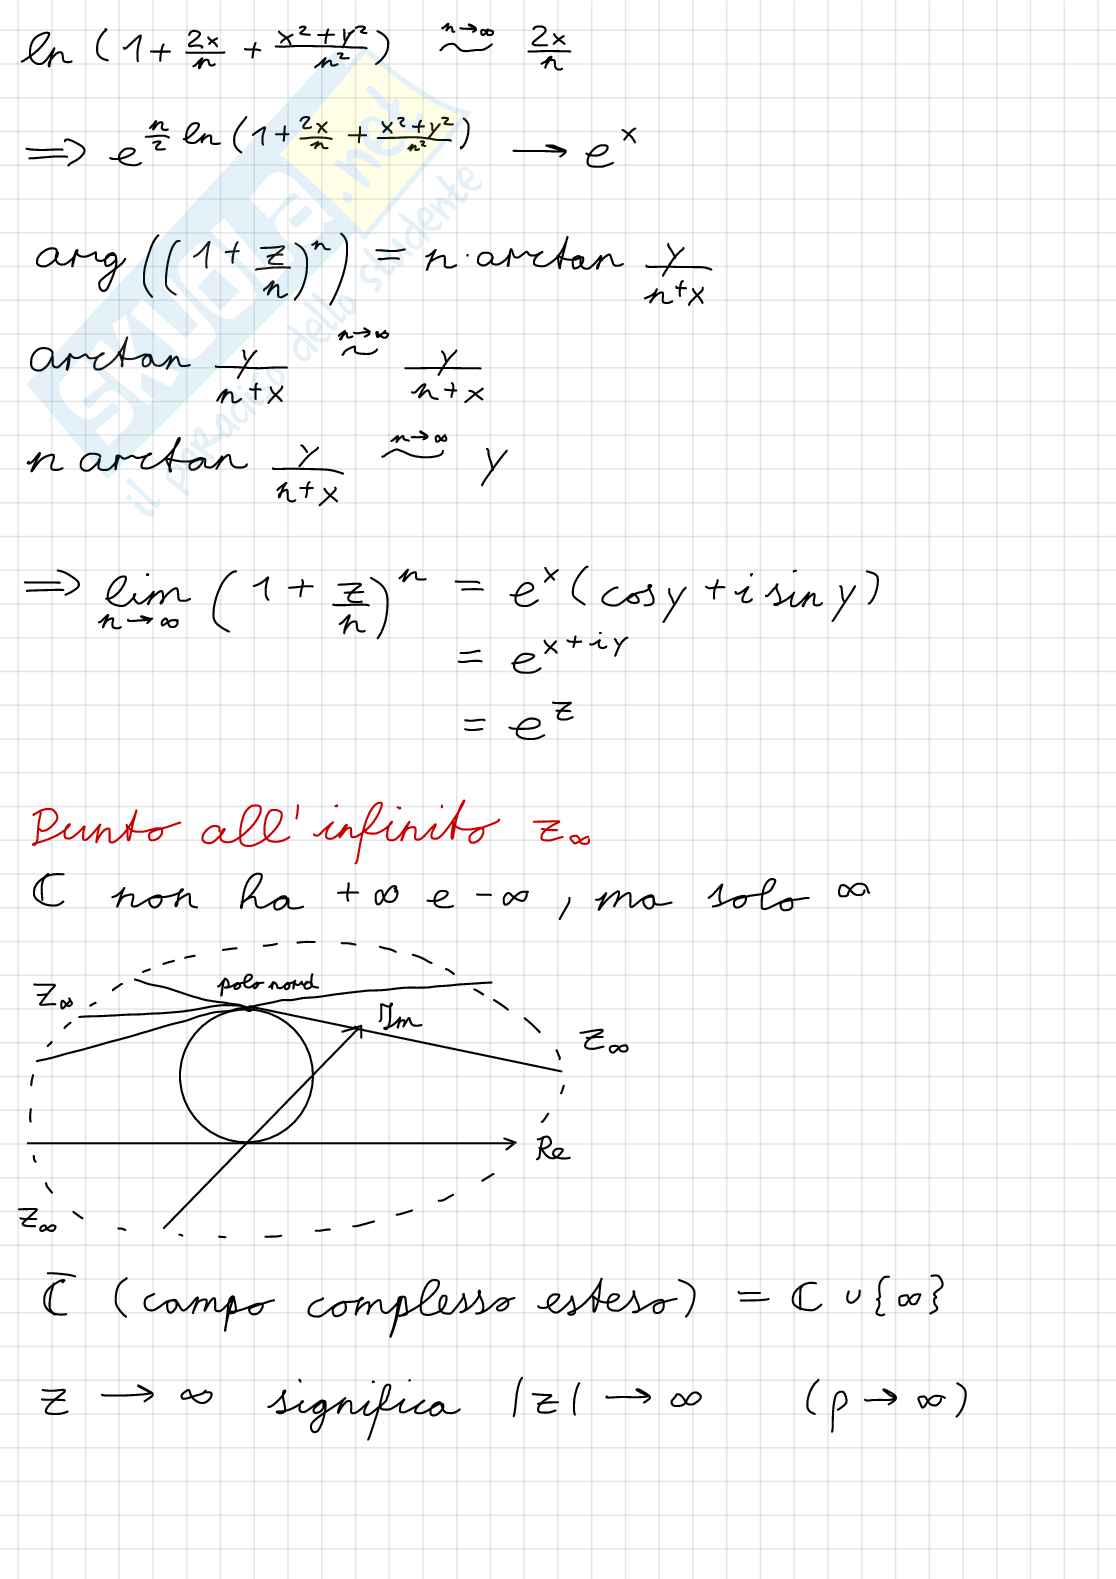 ln (1 + 2x/n + (x² + y²)/n²) ~ (n→∞) 2x/n
⟹ e^(n/2 ln (1 + 2x/n + (x² + y²)/n²)) → e^x
arg((1 + z/n)^n) = n · arctan y/(n+x)
arctan y/(n+x) ~ (n→∞) y/(n+x)
n arctan y/(n+x) ~ (n→∞) y
⟹ lim n→∞ (1 + z/n)^n = e^x (cos y + i sin y)
= e^(x+iy)
= e^z
Punto all'infinito z∞
ℂ non ha +∞ e -∞, ma solo ∞
polo nord
z∞
Im
z∞
Re
z∞
ℂ̅ (campo complesso esteso) = ℂ ∪ {∞}
z → ∞ significa |z| → ∞ (ρ → ∞)
SKUOLA.net
il paradiso dello studente